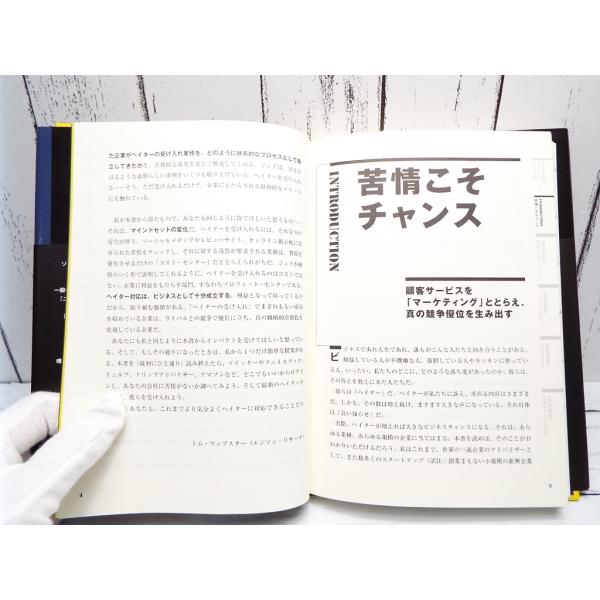 た企業がヘイターの受け入れ業務を、どのように体系的なプロセスとして確
立してきたかを、具体的な成果を交えて解説してくれる。ジェイは、目をみ
はるような素晴らしい事例をいくつも取り上げている。ヘイターを受け入れ
る——そう、ただ受け入れるだけで、企業にもたらされる財務的なメリット
にも触れている。
私が本書から得たもので、あなたも同じように得てほしいと思うもの——
それは、マインドセットの変化だ。ヘイターを受け入れるには、それなりの
労力が伴う。ソーシャルメディアやレビューサイト、オンライン掲示板に寄
せられた苦情をチェックし、それに対する返答が要求される業務は、費用を
発生させるだけの「コスト・センター」ととらえられがちだ。ジェイが最
後のいくつ形で説明してくれるように、ヘイターを受け入れるのはコストではな
い。企業に利益をもたらす部門、すなわちプロフィット・センターである。
ヘイター対応は、ビジネスとして十分成立する。利益となって戻ってくるのだ
から、取り組む価値がある。「ヘイターの受け入れ」でまぎれもない成功
を収めている企業は、ライバルとの競争で優位に立ち、真の戦略的差別化を
実現している企業だ。
あなたにも私と同じように本書からインパクトを受けてほしいと思ってい
る。そして、もしその通りになったときは、私から1つだけ簡単な提案があ
る。本書を（最初にひと通り）読み終えたら、ツイッターやフェイスブック、
イェルプ、トリップアドバイザー、アマゾンなど、どこでもいいからログイ
ンし、あなたの会社に苦情がないか調べてみよう。そして最新のヘイターを
、彼らを受け入れよう。
あなたも、これまでより気分よくヘイターに対応できることだろ
トム・ウェブスター（エジソン・リサーチ）
4
INTRODUCTION
苦情こそ
チャンス
顧客サービスを
「マーケティング」ととらえ、
真の競争優位を生み出す
ビジネスであれ人生であれ、誰もがこんな人たちと向き合うことがある。
動揺している人や不機嫌な人、落胆している人やカンカンに怒ってい
る人。いったい、私たちのどこに、どのような落ち度があったのか。彼らは、
その答えを教えにきた人たちだ。
彼らは「ヘイター」だ。ヘイターが私たちに訴え、求める内容はさまざま
だ。しかも、その数は増え続け、ますます大きな声になっている。それ自体
は「良い知らせ」だ。
実際、ヘイターが増えれば大きなビジネスチャンスになる。それは、あら
ゆる業種、あらゆる規模の企業に当てはまる。本書を読めば、そのことがお
わかりいただけるだろう。私はこれまで、世界の一流企業のアドバイザーと
して、また数多くのスタートアップ（訳注：創業まもない小規模の新興企業
5